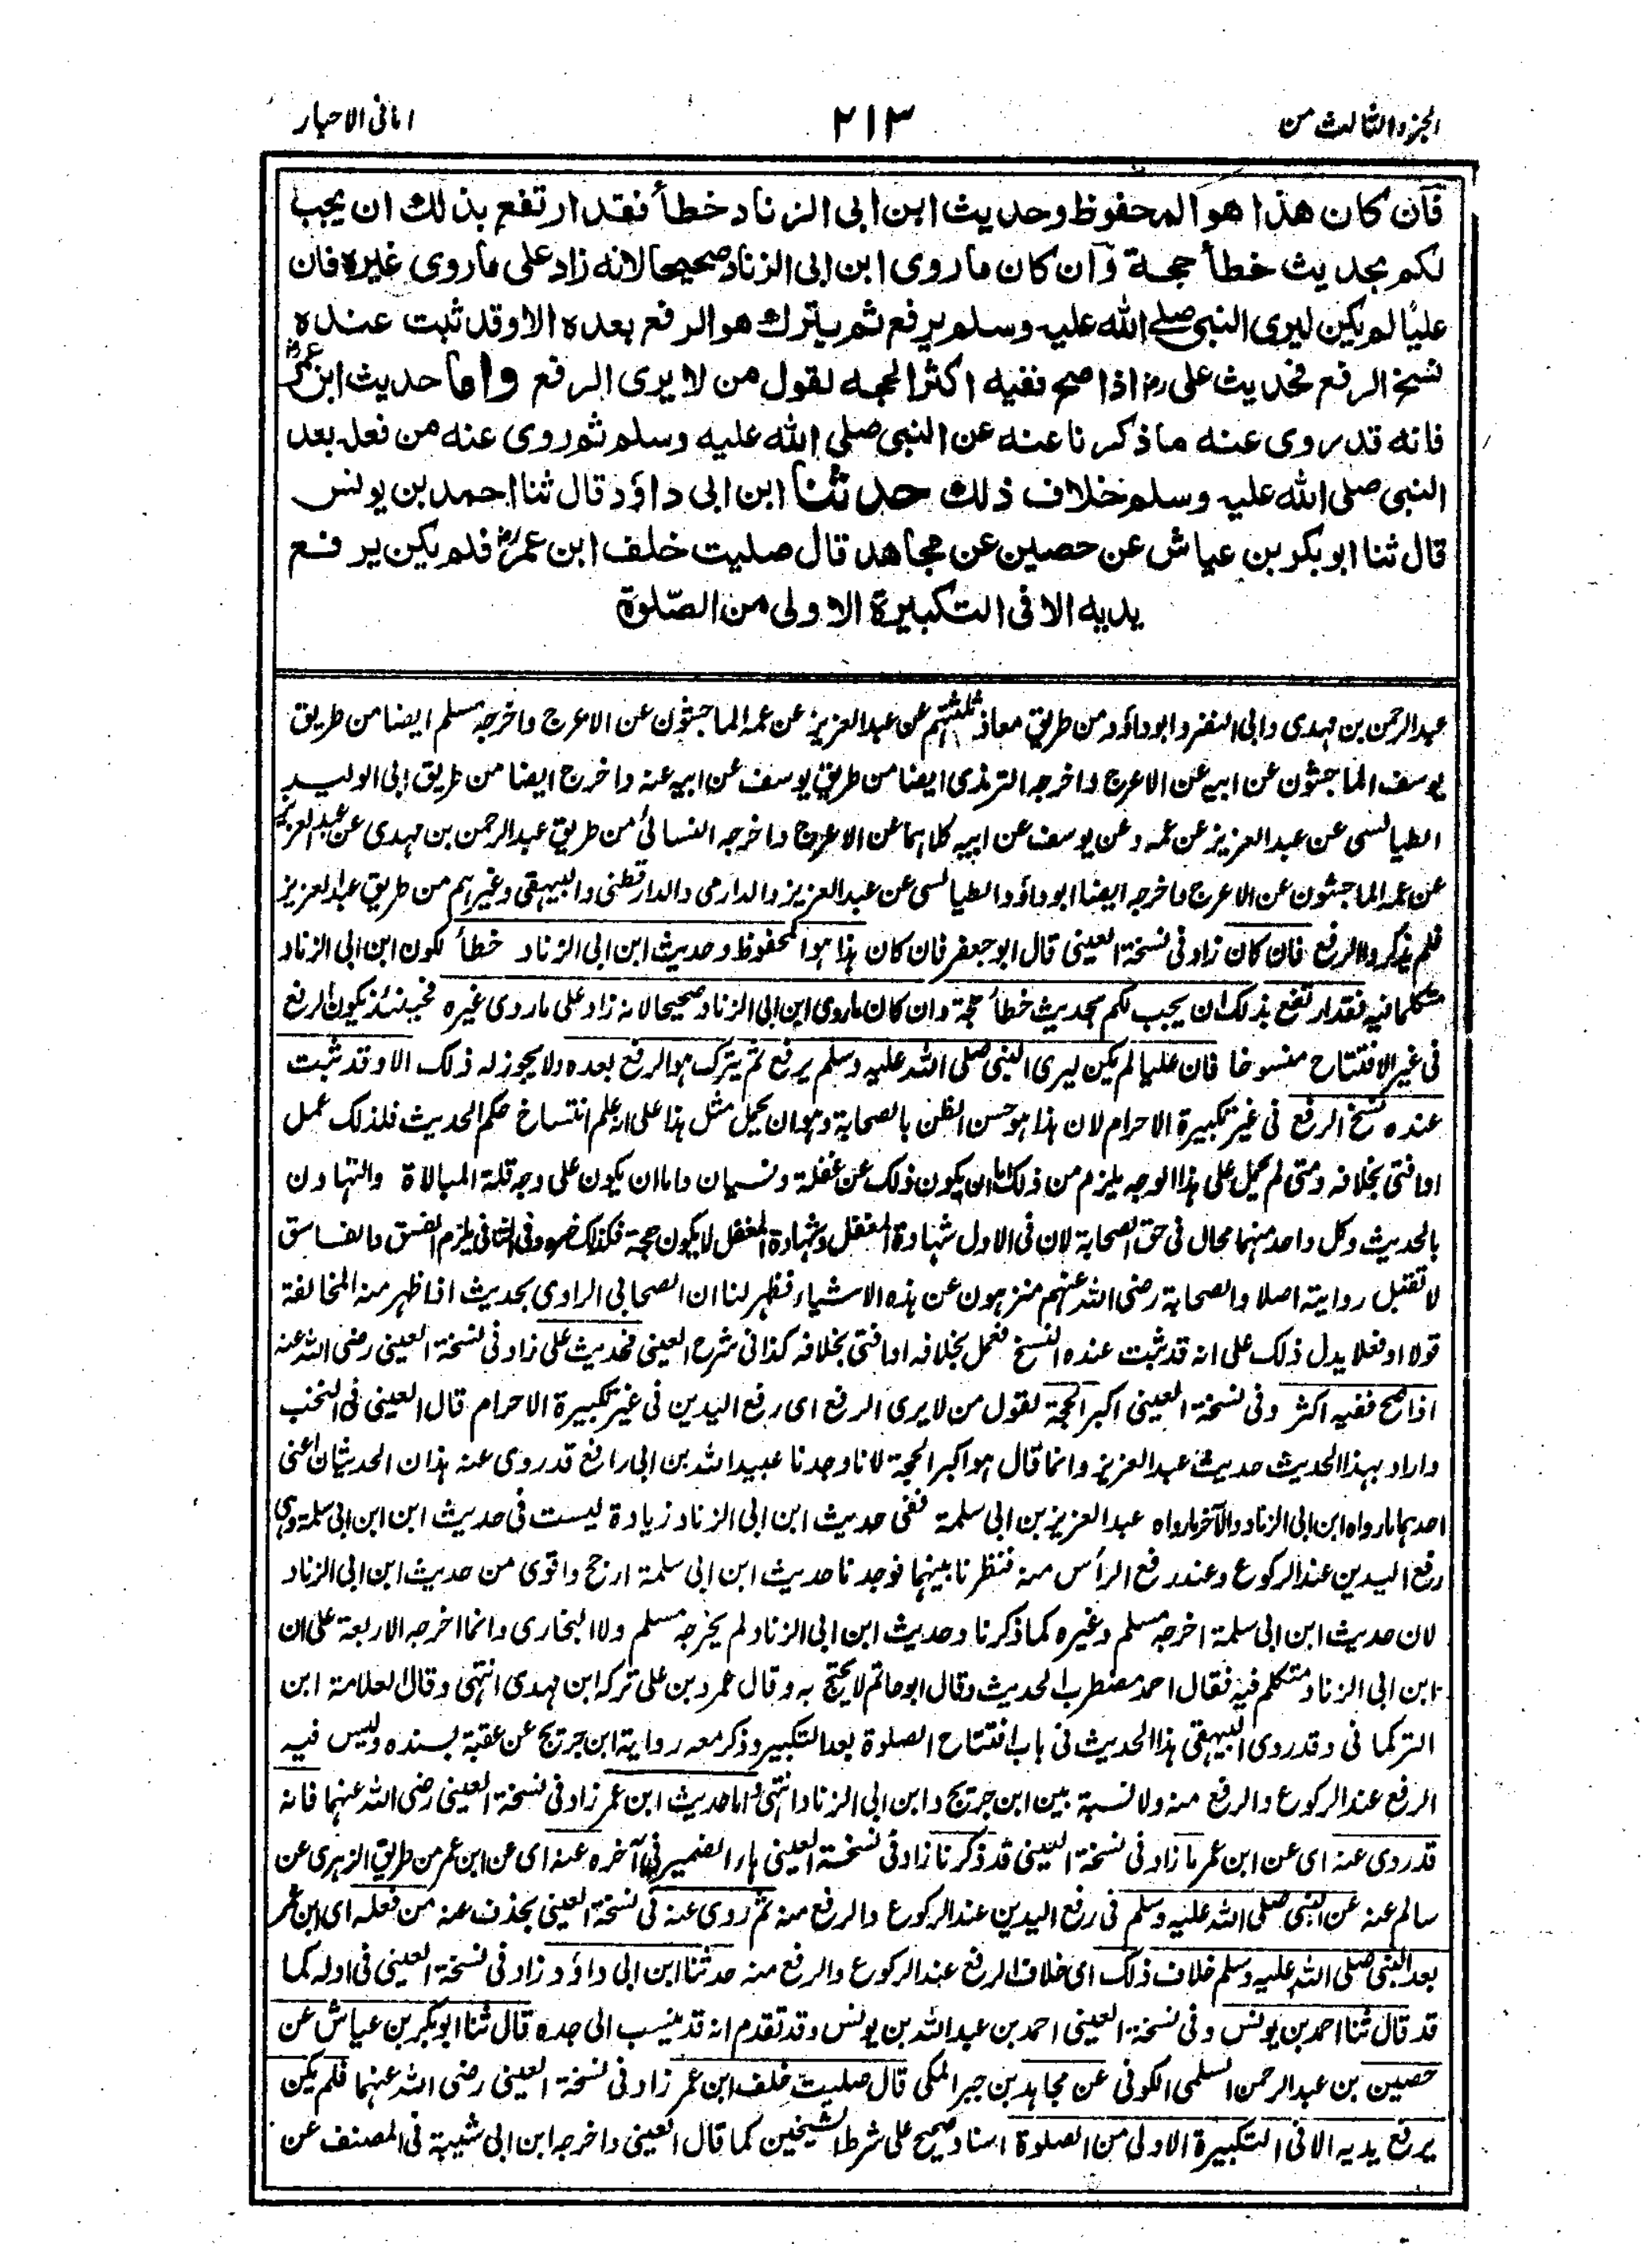 الجزء الثالث من
٢١٣
امانی الاحبار
فآن كان هذا هو المحفوظ وحديث ابن ابى الزناد خطأ فقد ارتفع بذلك ان يجب
لكم بحديث خطأ حجة وآن كان ما روى ابن ابى الزناد صحيحا لانه زاد على ما روى غيره فان
عليا لم يكن ليرى النبى صلى الله عليه وسلم يرفع ثم يترك هو الرفع بعده الا وقد ثبت عنده
نسخ الرفع فحديث على رض اذا صح ففيه اكثر الحجه لقول من لا يرى الرفع واما حديث ابن عمر رض
فانه قد روى عنه ما ذكرنا عنه عن النبى صلى الله عليه وسلم ثم روى عنه من فعله بعد
النبى صلى الله عليه وسلم خلاف ذلك حدثنا ابن ابى داؤد قال ثنا احمد بن يونس
قال ثنا ابو بكر بن عياش عن حصين عن مجاهد قال صليت خلف ابن عمر رض فلم يكن يرفع
يديه الا فى التكبيرة الاولى من الصلوة
عبد الرحمن بن مهدى وابى النضر وابو داؤد ومن طريق معاذ ثلثتهم عن عبد العزيز عن عمه الماجشون عن الاعرج واخرجه مسلم ايضا من طريق
يوسف الماجشون عن ابيه عن الاعرج واخرجه الترمذى ايضا من طريق يوسف عن ابيه عنه واخرج ايضا من طريق ابى الوليد
الطيالسى عن عبد العزيز عن عمه وعن يوسف عن ابيه كلاهما عن الاعرج واخرجه النسائى من طريق عبد الرحمن بن مهدى عن عبد العزيز
عن عمه الماجشون عن الاعرج واخرجه ايضا ابو داؤد والطيالسى عن عبد العزيز والدارمى والدارقطنى والبيهقى وغيرهم من طريق عبد العزيز
فلم يذكروا الرفع فان كان زاد فى نسخة العينى قال ابو جعفر فان كان هذا هو المحفوظ وحديث ابن ابى الزناد خطأ لكون ابن ابى الزناد
متكلما فيه فقد ارتفع بذلك ان يجب لكم بحديث خطأ حجة وان كان ما روى ابن ابى الزناد صحيحا لانه زاد على ما روى غيره فحينئذ يكون الرفع
فى غير الافتتاح منسوخا فان عليا لم يكن ليرى النبى صلى الله عليه وسلم يرفع ثم يترك هو الرفع بعده ولا يجوز له ذلك الا وقد ثبت
عنده نسخ الرفع فى غير تكبيرة الاحرام لان هذا هو حسن الظن بالصحابة وهو ان يحمل مثل هذا على انه علم انتساخ حكم الحديث فلذلك عمل
او افتى بخلافه ومتى لم يحمل على هذا الوجه يلزم من ذلك اما ان يكون ذلك عن غفلة ونسيان واما ان يكون على وجه قلة المبالاة والتهاون
بالحديث وكل واحد منهما محال فى حق الصحابة لان فى الاول شهادة المغفل وشهادة المغفل لا يكون حجة فكذلك خبره وفى الثانى يلزم الفسق والفاسق
لا تقبل روايته اصلا والصحابة رضى الله عنهم منزهون عن هذه الاشياء فظهر لنا ان الصحابى الراوى بحديث اذا ظهر منه المخالفة
قولا او فعلا يدل ذلك على انه قد ثبت عنده النسخ فعمل بخلافه او افتى بخلافه كذا فى شرح العينى فحديث على زاد فى نسخة العينى رضى الله عنه
اذا صح ففيه اكثر وفى نسخة العينى اكبر الحجة لقول من لا يرى الرفع اى رفع اليدين فى غير تكبيرة الاحرام قال العينى فى النخب
واراد بهذا الحديث حديث عبد العزيز وانما قال هو اكبر الحجة لانا وجدنا عبيد الله بن ابى رافع قد روى عنه هذان الحديثان اعنى
احدهما رواه ابن ابى الزناد والآخر ما رواه عبد العزيز بن ابى سلمة ففى حديث ابن ابى الزناد زيادة ليست فى حديث ابن ابن ابى سلمة وهى
رفع اليدين عند الركوع وعند رفع الرأس منه فنظرنا بينهما فوجدنا حديث ابن ابى سلمة ارجح واقوى من حديث ابن ابى الزناد
لان حديث ابن ابى سلمة اخرجه مسلم وغيره كما ذكرنا وحديث ابن ابى الزناد لم يخرجه مسلم ولا البخارى وانما اخرجه الاربعة على ان
ابن ابى الزناد متكلم فيه فقال احمد مضطرب الحديث وقال ابو حاتم لا يحتج به وقال عمرو بن على تركه ابن مهدى انتهى وقال العلامة ابن
التركمانى وقد روى البيهقى هذا الحديث فى باب افتتاح الصلوة بعد التكبير وذكر معه رواية ابن جريج عن عقبة بسنده وليس فيه
الرفع عند الركوع والرفع منه ولا نسبة بين ابن جريج وابن ابى الزناد انتهى واما حديث ابن عمر زاد فى نسخة العينى رضى الله عنهما فانه
قد روى عنه اى عن ابن عمر ما زاد فى نسخة العينى قد ذكرنا زاد فى نسخة العينى هاء الضمير فى آخره عنه اى عن ابن عمر من طريق الزهرى عن
سالم عنه عن النبى صلى الله عليه وسلم فى رفع اليدين عند الركوع والرفع منه ثم روى عنه فى نسخة العينى بحذف عنه من فعله اى ابن عمر
بعد النبى صلى الله عليه وسلم خلاف ذلك اى خلاف الرفع عند الركوع والرفع منه حدثنا ابن ابى داؤد زاد فى نسخة العينى فى اوله كما
قد قال ثنا احمد بن يونس وفى نسخة العينى احمد بن عبد الله بن يونس وقد تقدم انه قد ينسب الى جده قال ثنا ابو بكر بن عياش عن
حصين بن عبد الرحمن السلمى الكوفى عن مجاهد بن جبر المكى قال صليت خلف ابن عمر زاد فى نسخة العينى رضى الله عنهما فلم يكن
يرفع يديه الا فى التكبيرة الاولى من الصلوة اسناد صحيح على شرط الشيخين كما قال العينى واخرجه ابن ابى شيبة فى المصنف عن